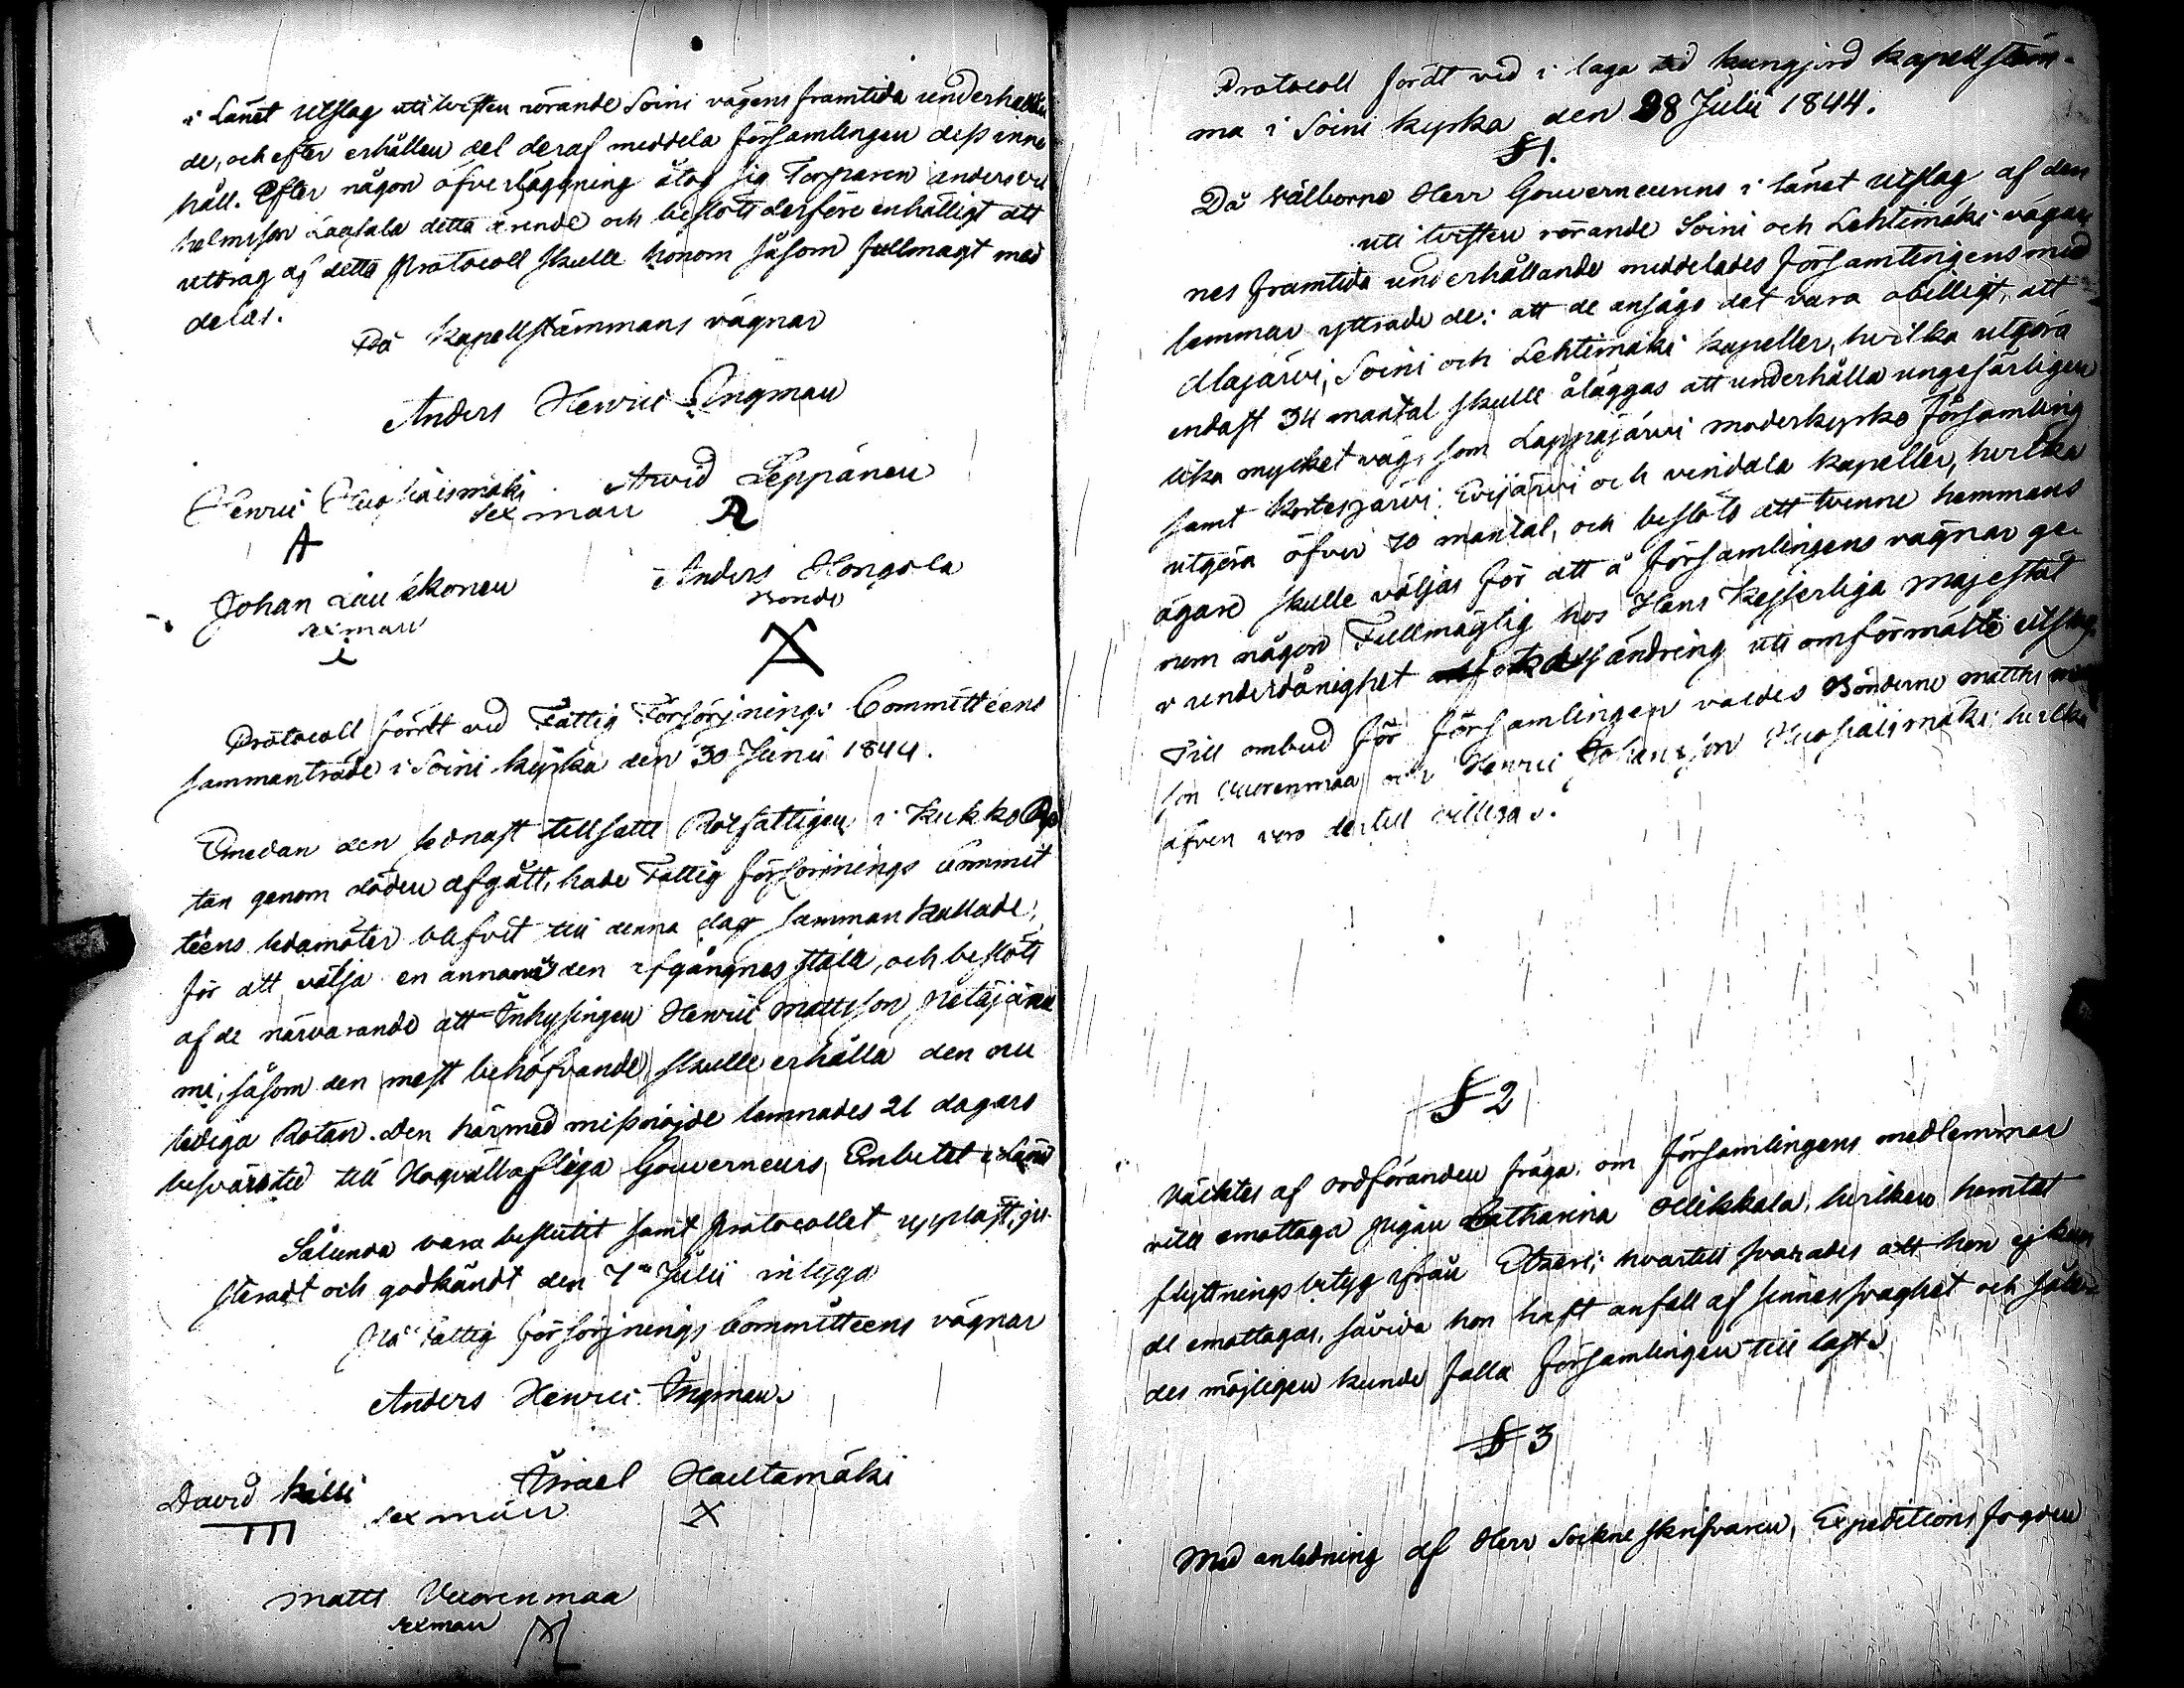 i Länet Utslag uti tvisten rörande Soini vägens framtida underhållan
de, och efter erhållen del deraf meddela Församlingen dess inne
håll. Efter någon öfverläggning åtog sig Torparen Anders Vil
helmsson Laasala detta ärende och beslöts derföre enhälligt att
utdrag af detta Protocoll skulle honom såsom fullmagt med
delas.
På Kapellstämmans vägnar
Anders Henric Ingman
Henric Huopaismäki Arvid Leppänen
Sexman
A
Johan Liukkonen Anders Hongola
sexman Bonde
Protocoll fördt vid Fattig Försörjnings Committéens
sammanträde i Soini kyrka den 30 Junii 1844.
Emedan den sednast tillsatte Rotfattigen i Kukko Ro
tan genom döden afgått, hade Fattig Försörjnings Commit
téens ledamöter blifvit till denna dag sammankallade,
för att välja en annan i den afgångnes ställe, och beslöts
af de närvarande att Inhysingen Henric Mattsson Petäjänie
mi, såsom den mest behöfvande, skulle erhålla den nu
lediga Rotan. Den härmed missnöjde lemnades 21 dagars
besvärstid till Högvällofliga Gouverneurs Embetet i Länet
Sålunda vara beslutit samt Protocollet uppläst, ju
steradt och godkändt den 7de Julii intyga
På Fattig Försörjnings Committéens vägnar
Anders Henric Ingman
David Killi Israel Hautamäki
sexmän X
Matts Vuorenmaa
sexman
Protocoll fördt vid i laga tid kungjord Kapellstäm-
ma i Soini kyrka den 28 Julii 1844.
§ 1.
Då Välborne Herr Gouverneurens i länet Utslag af den
uti tvisten rörande Soini och Lehtimäki vägar
nes framtida underhållande meddelades Församlingens med
lemmar yttrade de: att de ansågo det vara obilligt, att
Alajärvi, Soini och Lehtimäki kapeller, hvilka utgöra
endast 34 mantal skulle åläggas att underhålla ungefärligen
lika mycket väg, som Lappajärvi moderkyrko Församling
samt Kortesjärvi, Evijärvi och Vindala kapeller, hvilka
utgöra öfver 70 mantal, och beslöts att tvenne hemmans
ägare skulle väljas för att å Församlingens vägnar ge-
nom någon Fullmägtig hos Hans Kejserliga Majestät
i underdånighet söka ändring uti omförmälte utslag.
Till ombud för Församlingen valdes Bönderne Matths
son Vuorenmaa och Henric Johansson Huopaismäki, hvilka
äfven voro dertill villiga.
§ 2
Väcktes af ordföranden fråga, om Församlingens medlemmar
ville emottaga pigan Catharina Ollikkala, hvilken hemtat
flyttningsbetyg ifrån Etseri; hvartill svarades att hon ej kun
de emottagas, såvida hon haft anfall af sinnessvaghet och sålun-
des möjligen kunde falla Församlingen till last.
§ 3
Med anledning af Herr Sockneskrifvaren, Expeditions Fogden